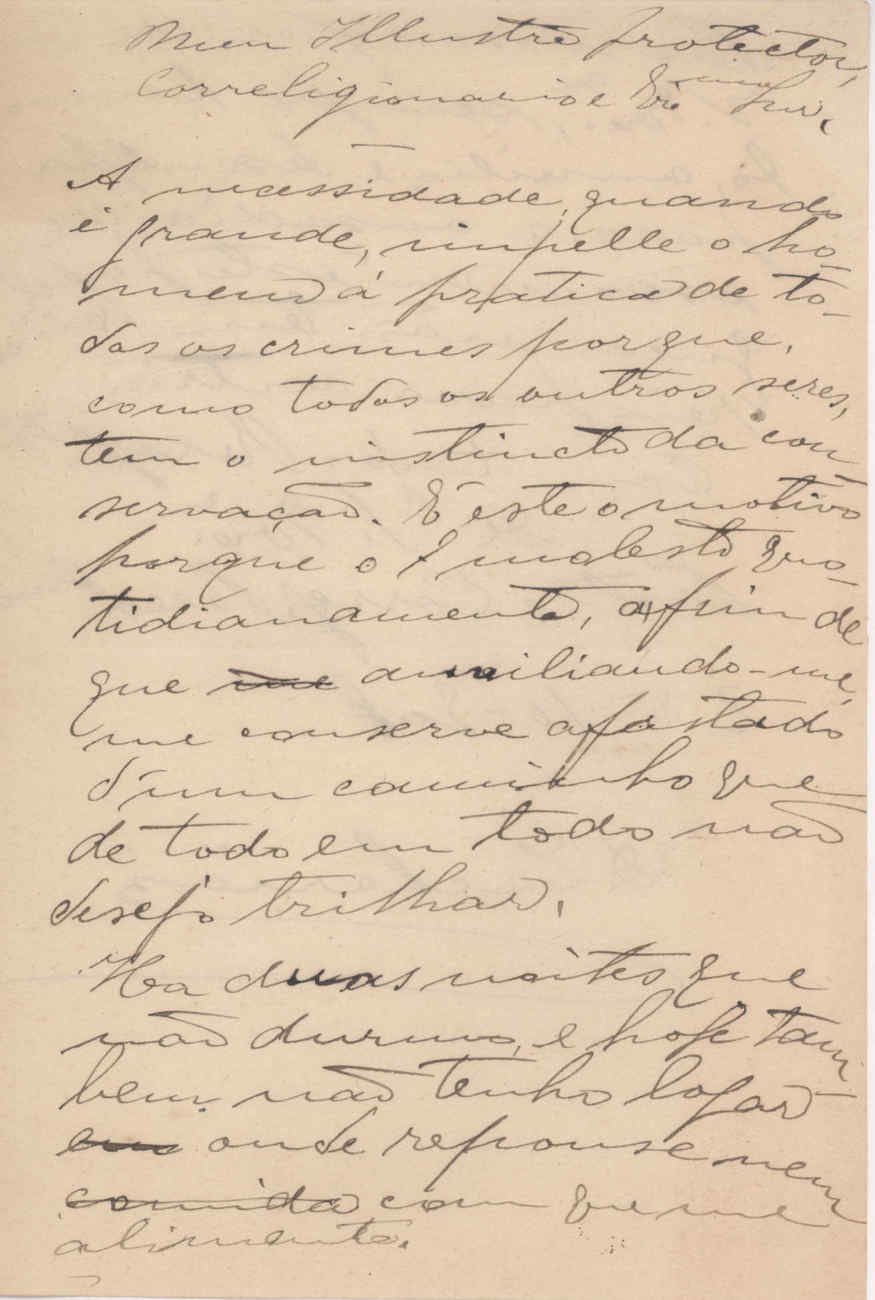 Meu Illustre protector,
Correligionario e Ex.mo Snr.
A necessidade, quando
é grande, impelle o ho-
mem á pratica de to-
dos os crimes porque,
como todos os outros seres,
tem o instincto da con-
servação. É este o motivo
porque o molesto quo-
tidianamente, afim de
que me auxiliando-me,
me conserve afastado
d'um caminho que
de todo em todo não
desejo trilhar.
Ha duas noites que
não durmo, e hoje tam-
bem não tenho logar
em onde repouse nem
comida com que me
alimente.